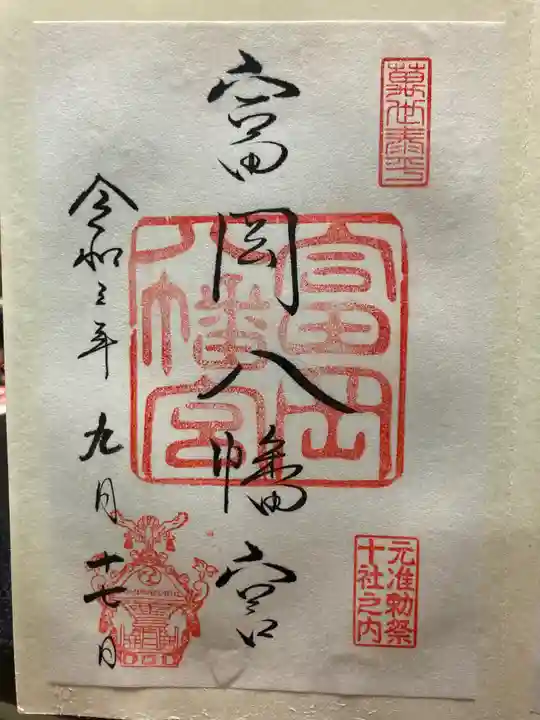 萬世泰平
富岡八幡宮
富岡
八幡宮
元准勅祭
十社之内
令和三年 九月十七日